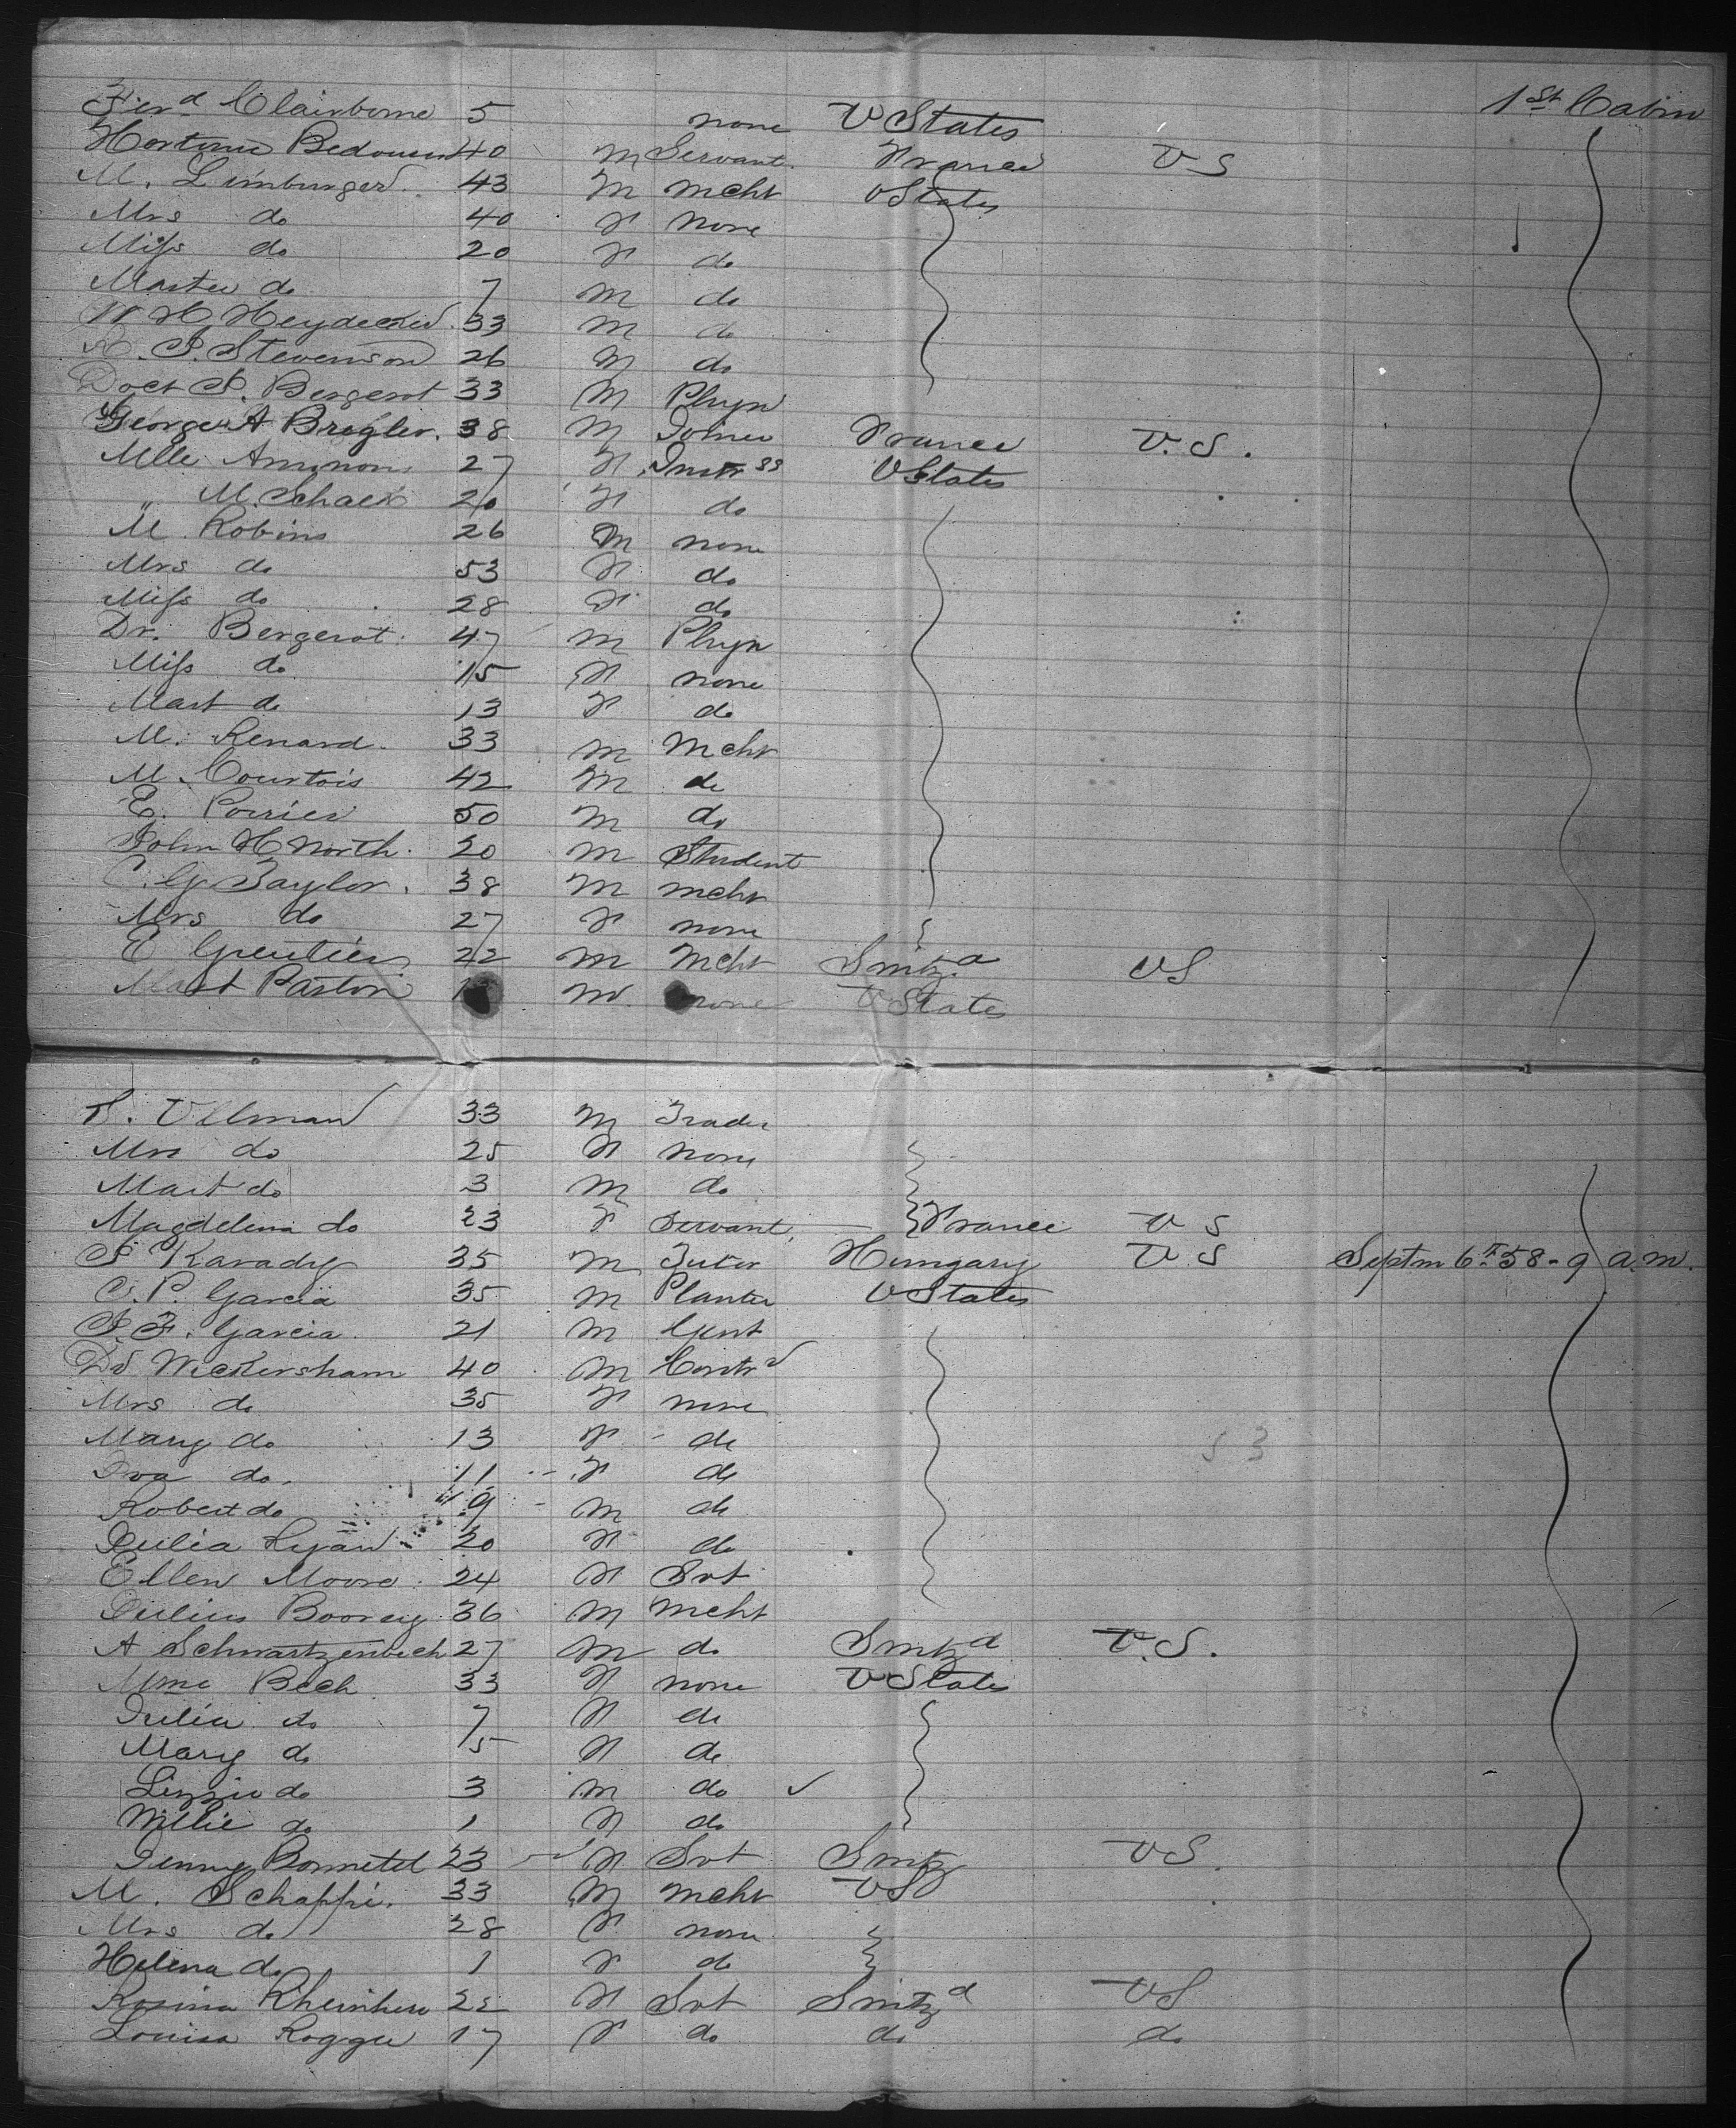 Ferd Clairborne 5 none U States 1st Cabin
Hortense 40 m Servant France U S
M. Limburger 43 m mcht U States
Mrs do 40 F none
Miss do 20 F do
Master do 7 m do
W H Heydecker 33 m do
R. P. Stevenson 26 m do
Doct P. Bergerot 33 m Phyn
George A Bregler. 38 m Joiner France U.S.
Mlle 27 F Instrss U States
" M. 20 F do
M Robins 26 m none
Mrs do 53 F do
Miss do 28 F do
Dr. Bergerot 47 m Phyn
Miss do 15 F none
Mast do 13 F do
M. Renard 33 m Mcht
M Courtois 42 m do
E. Poirier 50 m do
John H North 20 m Student
C. G Taylor. 38 m mcht
Mrs do 27 F none
E Greutier 22 m Mcht Switzd US
Mast m none U States
S. Ullman 33 m Trader
Mrs do 25 F none
Mast do 3 m do
Magdelena do 23 F Servant, France U S
P Karady 35 m Tutor Hungary U S Septm 6th 58 - 9 a.m.
C. P. Garcia 35 m Planter U States
P. F. Garcia 21 m Gent
Dd Wickersham 40 m Contrr
Mrs do 35 F none
Mary do 13 F do 53
Eva do. 11 F do
Robert do 9 m do
Julia Ryan 20 F do
Ellen Moore 24 F Svt
Julius 36 m mcht
A Schwartzenbech 27 m do Switzd U.S.
Mme Bech 33 F none U States
Julia do 7 F do
Mary do 5 F do
Lizzie do 3 m do ✓
Willie do 1 F do
Jenny Bonnetel 23 F Svt Switz US.
M. Schappi. 33 m mcht US
Mrs do 28 F none
Helena do 1 F do
Rosina 22 F Svt Switzd US
Louisa Rogger 17 F do do do